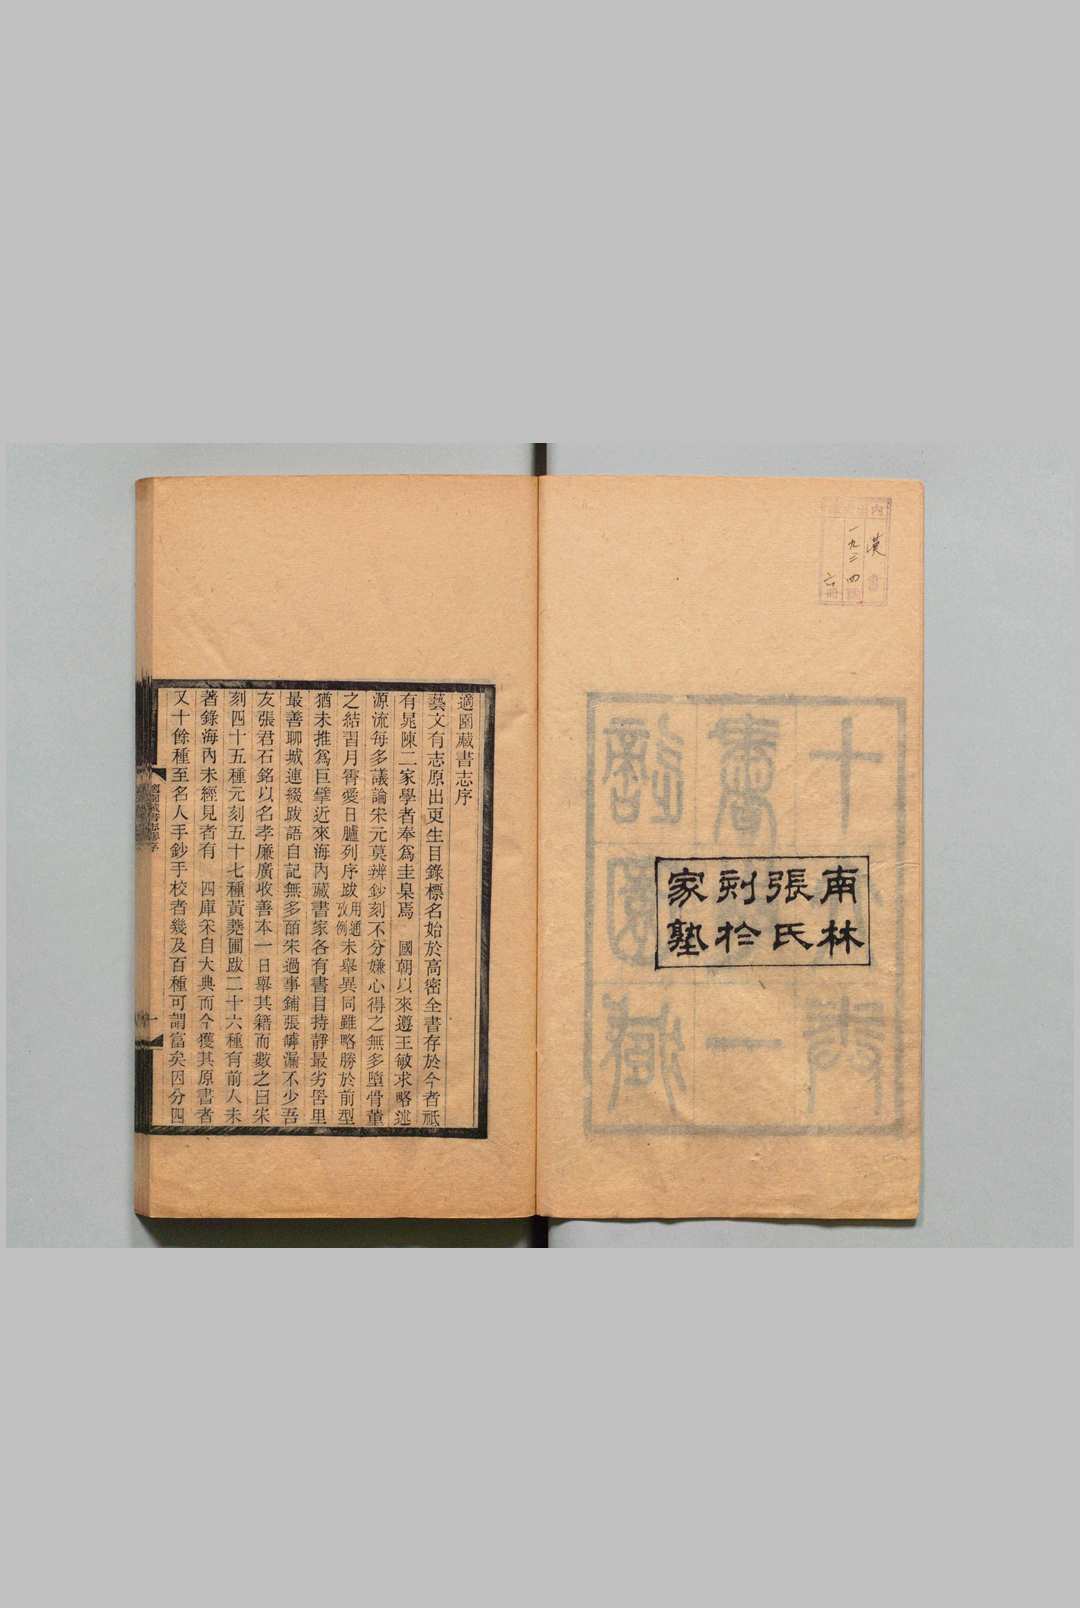 漢
一九二四
六冊
南林
張氏
刻於
家塾
適園藏書志序
藝文有志原出更生目錄標名始於高密全書存於今者祇
有晁陳二家學者奉爲圭臬焉　國朝以來遵王敏求略述
源流每多議論宋元莫辨鈔刻不分嫌心得之無多墮骨董
之結習月霄愛日臚列序跋用通攷例未舉異同雖略勝於前型
猶未推爲巨擘近來海內藏書家各有書目持靜最劣罟里
最善聊城連綴跋語自記無多皕宋過事鋪張罅漏不少吾
友張君石銘以名孝廉廣收善本一日舉其籍而數之曰宋
刻四十五種元刻五十七種黃蕘圃跋二十六種有前人未
著錄海內未經見者有　四庫采自大典而今獲其原書者
又十餘種至名人手鈔手校者幾及百種可謂富矣因分四
適園藏書志序
一